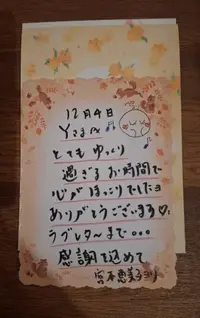 12月4日
Yさま
とても ゆっくり
過ぎる お時間で
心が ほっこりでしたョ
ありがとうございます♡
ラブレターまで。。。
感謝を込めて
宮本恵美子より